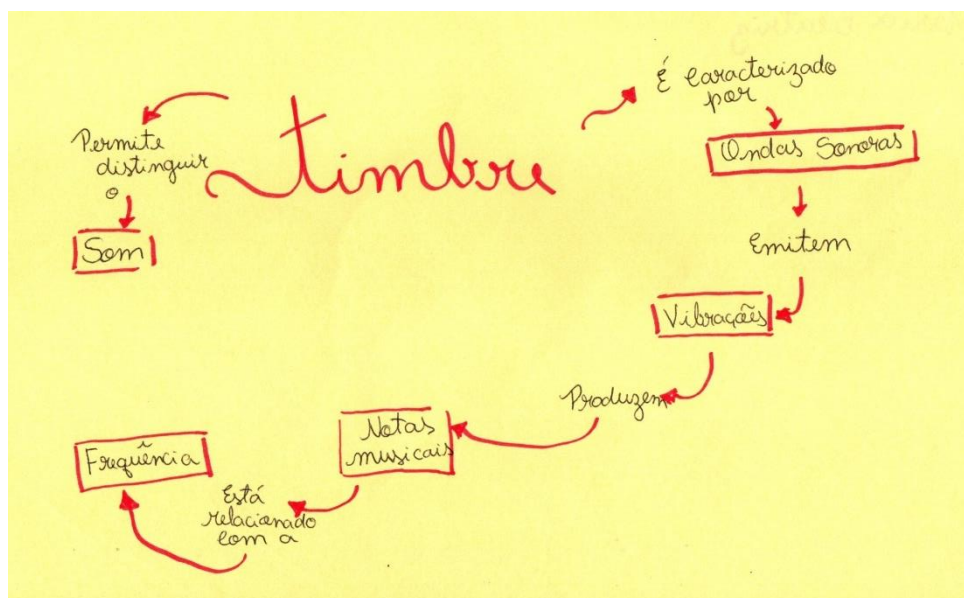 timbre
Permite
distinguir
o
Som
É caracterizado
por
Ondas Sonoras
Emitem
Vibrações
Produzem
Notas
musicais
Está
relacionado
com a
Frequência